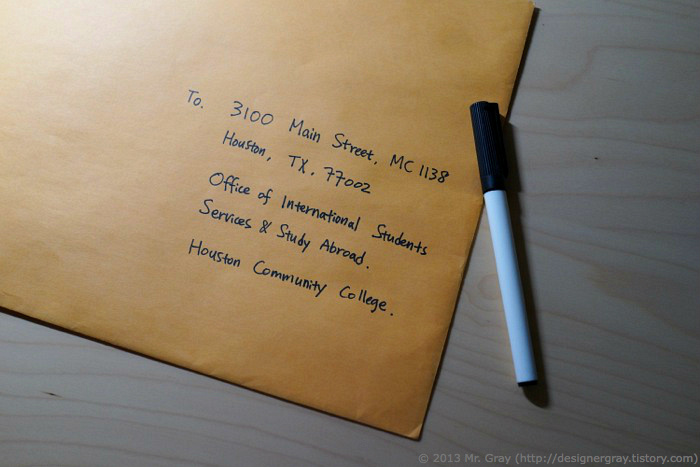 To. 3100 Main Street, MC 1138
Houston, TX. 77002
Office of International Students
Services & Study Abroad.
Houston Community College.
© 2013 Mr. Gray (http://designergray.tistory.com)